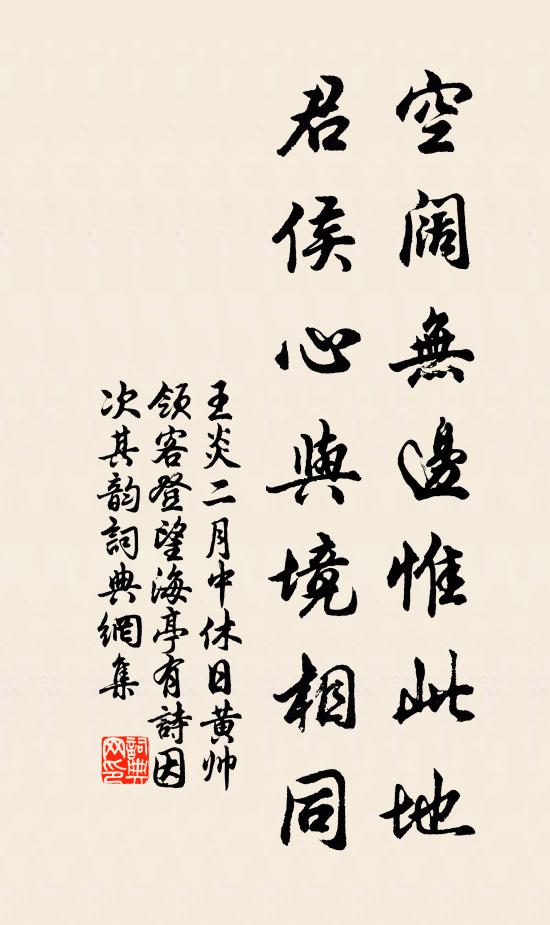 空阔無邊惟此地
君侯心與境相同
王炎二月中休日黄帅
领客登望海亭有詩因
次其韵詞典網集
詞典网印